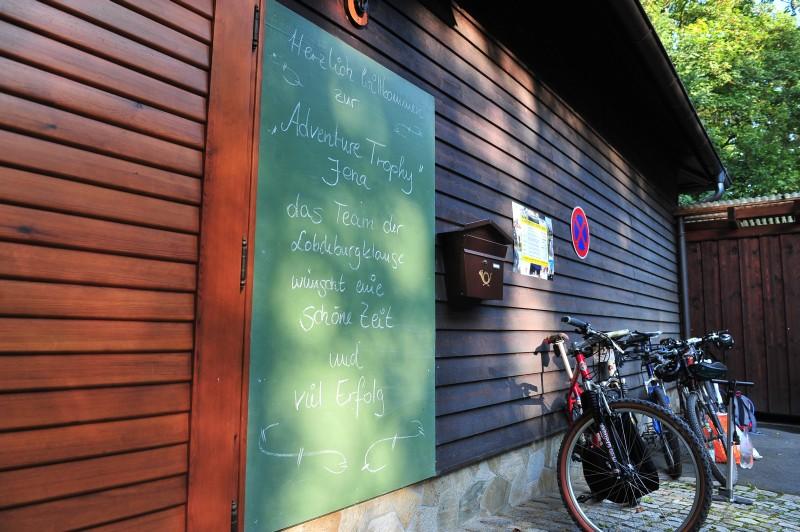 Herzlich Willkommen
zur
„Adventure Trophy"
Jena
das Team der
Lobdeburgklause
wünscht eine
schöne Zeit
und
viel Erfolg